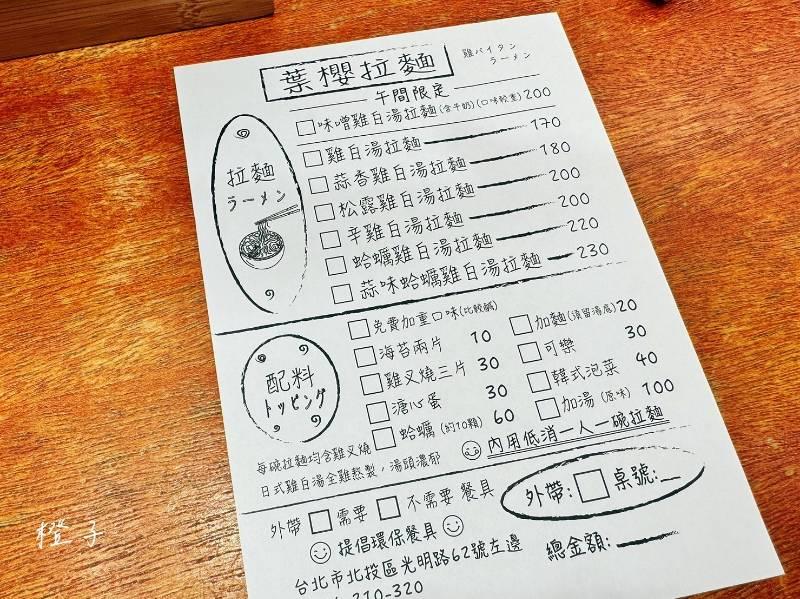 葉櫻拉麵
雞パイタン
ラーメン
午間限定
味噌雞白湯拉麵(含牛奶)(口味較重)200
拉麵
ラーメン
雞白湯拉麵 170
蒜香雞白湯拉麵 180
松露雞白湯拉麵 200
辛雞白湯拉麵 200
蛤蠣雞白湯拉麵 220
蒜味蛤蠣雞白湯拉麵 230
配料
トッピング
免費加重口味(比較鹹)
海苔兩片 10
雞叉燒三片 30
溏心蛋 30
蛤蠣(約10顆) 60
加麵(須留湯底)20
可樂 30
韓式泡菜 40
加湯(原味) 100
每碗拉麵均含雞叉燒
日式雞白湯全雞熬製,湯頭濃郁
內用低消一人一碗拉麵
外帶 需要 不需要 餐具
提倡環保餐具
外帶: 桌號:
台北市北投區光明路62號左邊
總金額:
210-320
橙子